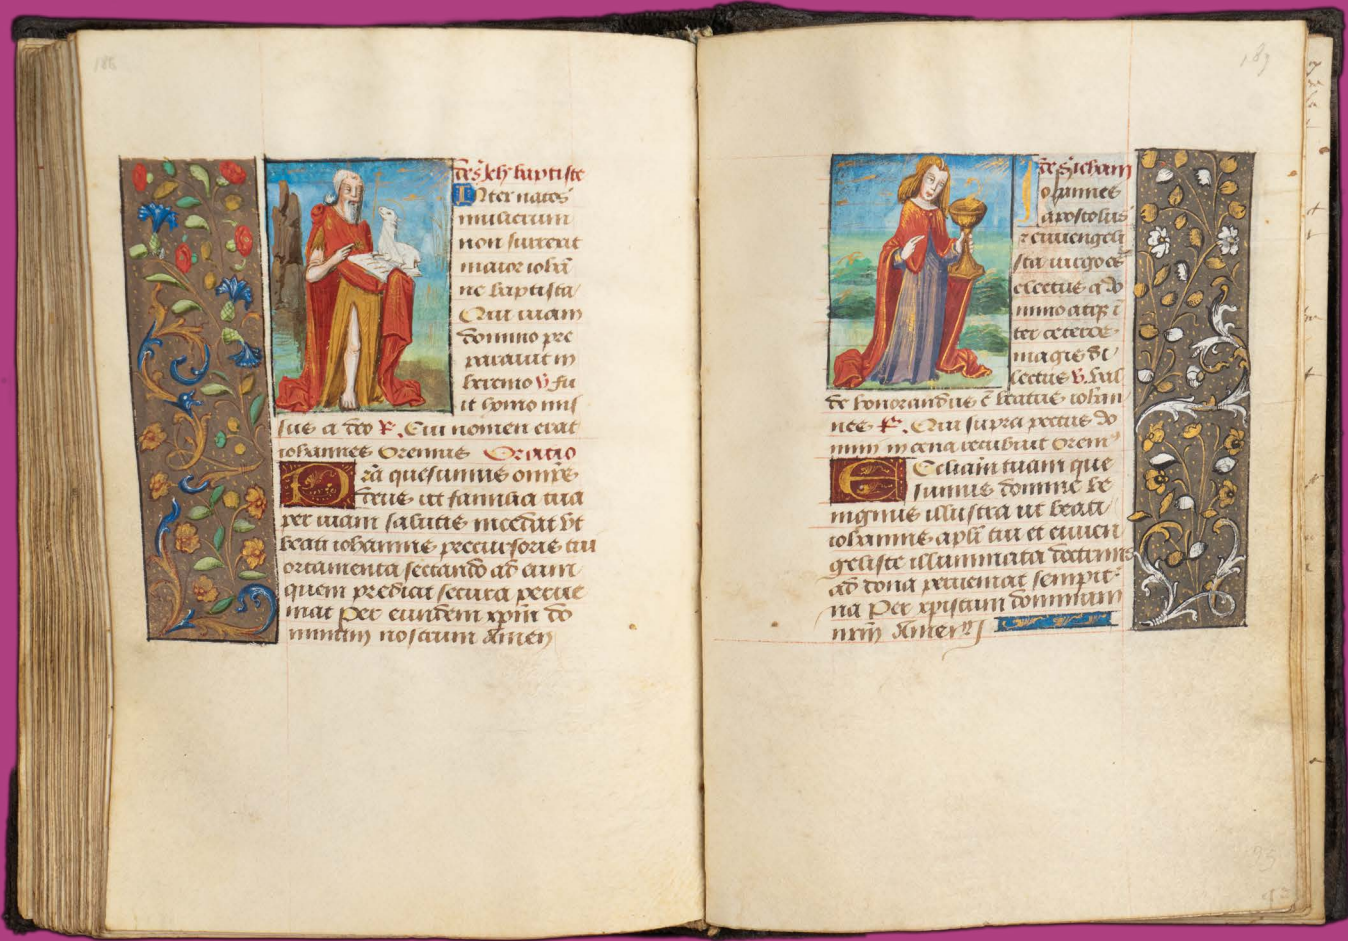 188
de s. Joh baptiste
Inter natos
mulierum
non surrexit
maior ioha
ne baptista
Qui viam
domino pre
paravit in
heremo V. fu
it homo mis
sus a deo R. Cui nomen erat
iohannes Oremus Oratio
Presta quesumus omnips
deus ut familia tua
per viam salutis incedat Et
beati iohannis precursoris tui
ortamenta sectando ad eum
quem predicit secura perve
niat Per eundem xpm do
minum nostrum Amen
189
de s. iehan
Iohannes
apostolus
et euuangeli
sta virgo es
electus a do
mino atqz i
ter ceteros
magis di
lectus V. Val
de honorandus e beatus iohan
nes R. Qui supra pectus do
mini in cena recubuit Orem
Ecclesiam tuam que
sumus domine be
nignus illustra ut beati
iohannis apli tui et euuan
geliste illuminata doctrinis
ad dona perveniat sempit
na Per xpistum dominum
nrm Amen